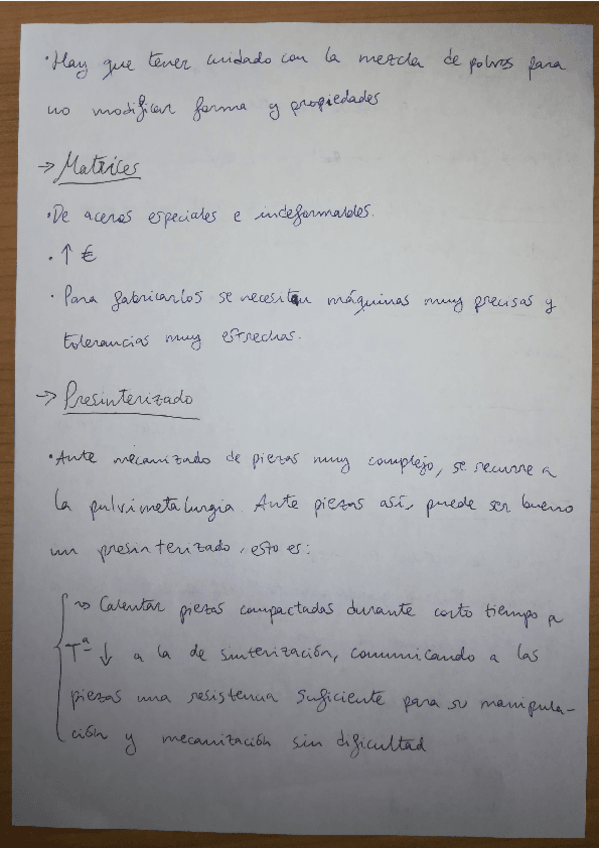 · Hay que tener cuidado con la mezcla de polvos para
no modificar forma y propiedades
→ Matrices
· De aceros especiales e indeformables.
· ↑ €
· Para fabricarlos se necesitan máquinas muy precisas y
tolerancias muy estrechas.
→ Presinterizado
· Ante mecanizado de piezas muy complejo, se recurre a
la pulvimetalurgia. Ante piezas así, puede ser bueno
un presinterizado, esto es:
Calentar piezas compactadas durante corto tiempo a
Tª ↓ a la de sinterización, comunicando a las
piezas una resistencia suficiente para su manipula-
ción y mecanización sin dificultad